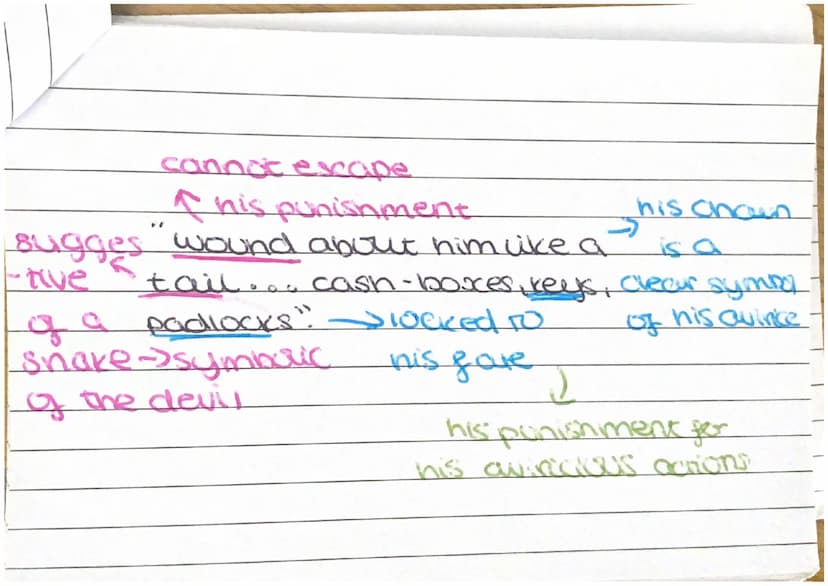 cannot escape
↖ his punishment
his chain
"wound about him like a → is a
sugges
-tive ↖ tail... cash-boxes, keys, clear symbol
of a padlocks". → locked to of his avirice
snake → symbolic his fate
of the devil
↓
his punishment for
his aviricious actions